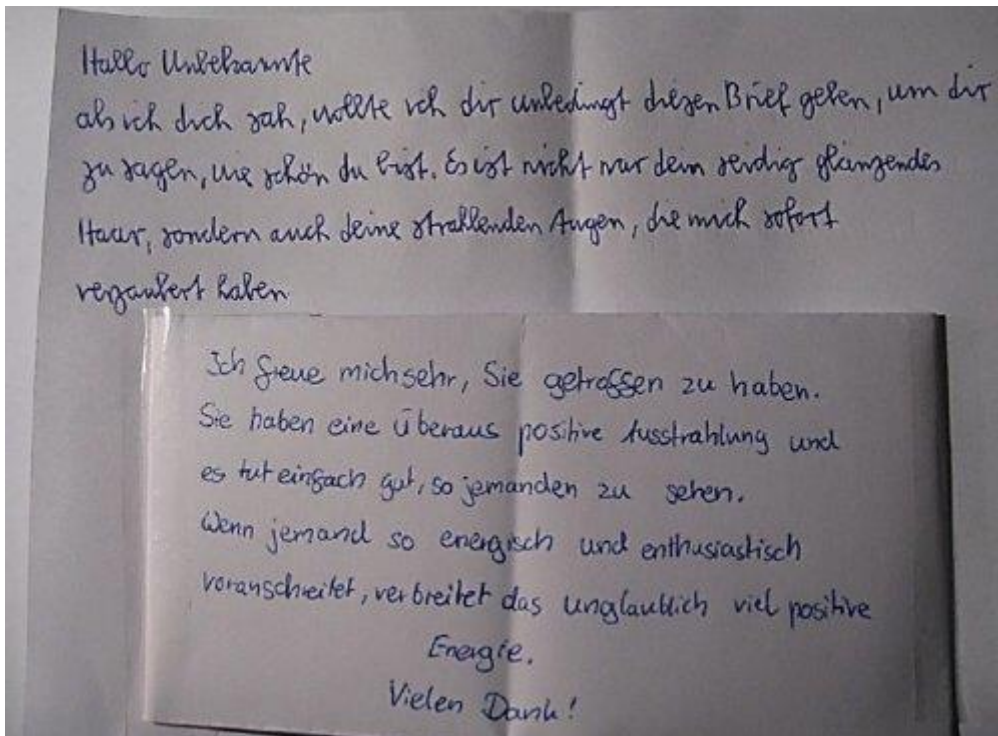 Hallo Unbekannte
als ich dich sah, wollte ich dir unbedingt diesen Brief geben, um dir
zu sagen, wie schön du bist. Es ist nicht nur dein seidig glänzendes
Haar, sondern auch deine strahlenden Augen, die mich sofort
verzaubert haben
Ich freue mich sehr, Sie getroffen zu haben.
Sie haben eine überaus positive Ausstrahlung und
es tut einfach gut, so jemanden zu sehen.
Wenn jemand so energisch und enthusiastisch
voranschreitet, verbreitet das unglaublich viel positive
Energie.
Vielen Dank!